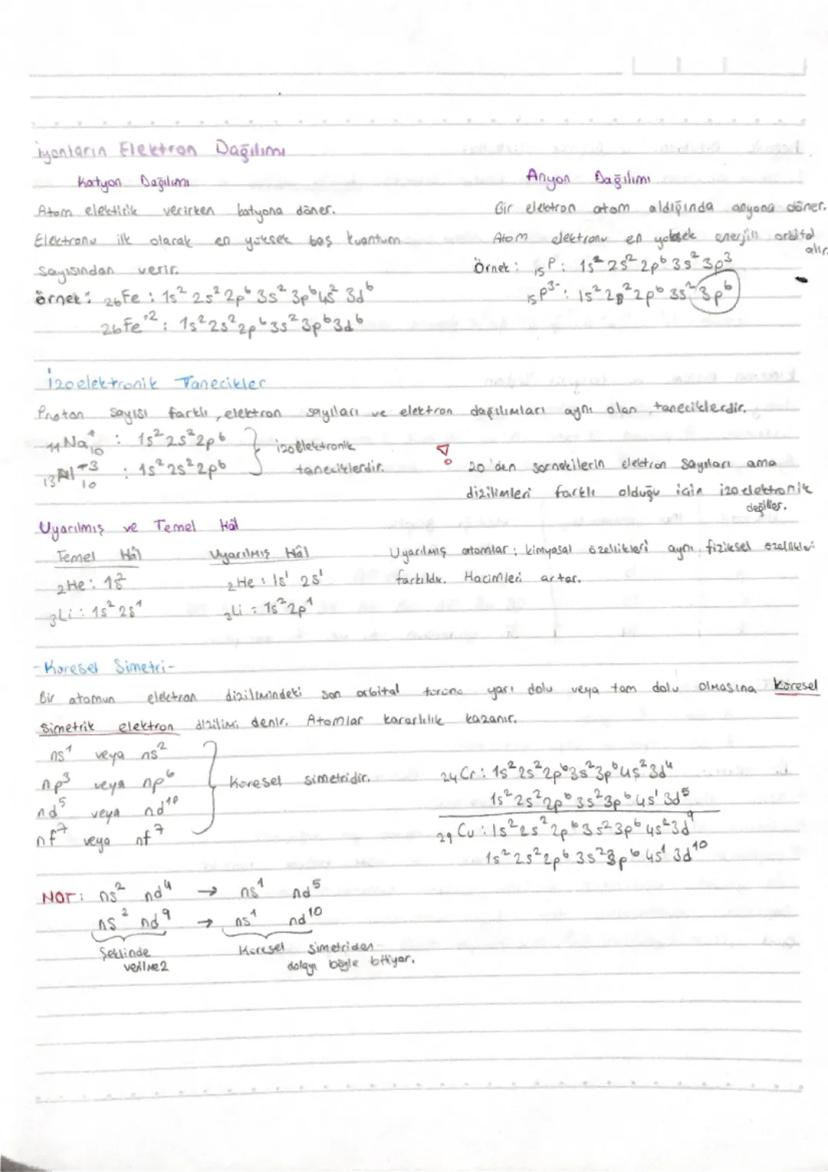 İyonların Elektron Dağılımı
Katyon Dağılımı
Atom elektirik verirken katyona döner.
Elektronu ilk olarak en yüksek baş kuantum
sayısından verir.
Örnek: ₂₆Fe : 1s² 2s² 2p⁶ 3s² 3p⁶ 4s² 3d⁶
₂₆Fe⁺² : 1s² 2s² 2p⁶ 3s² 3p⁶ 3d⁶
Anyon Dağılımı
Bir elektron atom aldığında anyona döner.
Atom elektronu en yüksek enerjili orbital
alır.
Örnek : ₁₅P : 1s² 2s² 2p⁶ 3s² 3p³
₁₅P³⁻ : 1s² 2s² 2p⁶ 3s² 3p⁶
İzoelektronik Tanecikler
Proton sayısı farklı, elektron sayıları ve elektron dağılımları aynı olan taneciklerdir.
₁₁Na⁺₁₀ : 1s² 2s² 2p⁶
₁₃Al⁺³₁₀ : 1s² 2s² 2p⁶
izoelektronik
taneciklerdir.
! 20'den sornekilerin elektron sayıları ama
dizilimleri farklı olduğu için izoelektronik
değiller.
Uyarılmış ve Temel Hâl
Temel Hâl
₂He : 1s²
₃Li : 1s² 2s¹
Uyarılmış Hâl
₂He : 1s¹ 2s¹
₃Li : 1s² 2p¹
Uyarılmış atomlar ; kimyasal özellikleri aynı, fiziksel özellikleri
farklıdır. Hacimleri artar.
-Küresel Simetri-
Bir atomun elektron dizilimindeki son orbital türünü yarı dolu veya tam dolu olmasına Küresel
simetrik elektron dizilimi denir. Atomlar kararlılık kazanır.
ns¹ veya ns²
np³ veya np⁶
nd⁵ veya nd¹⁰
nf⁷ veya nf⁷
Küresel simetridir.
₂₄Cr : 1s² 2s² 2p⁶ 3s² 3p⁶ 4s² 3d⁴
1s² 2s² 2p⁶ 3s² 3p⁶ 4s¹ 3d⁵
₂₉Cu : 1s² 2s² 2p⁶ 3s² 3p⁶ 4s² 3d⁹
1s² 2s² 2p⁶ 3s² 3p⁶ 4s¹ 3d¹⁰
NOT : ns² nd⁴ → ns¹ nd⁵
ns² nd⁹ → ns¹ nd¹⁰
Şeklinde
verilmez
Küresel simetriden
dolayı böyle bitiyor.